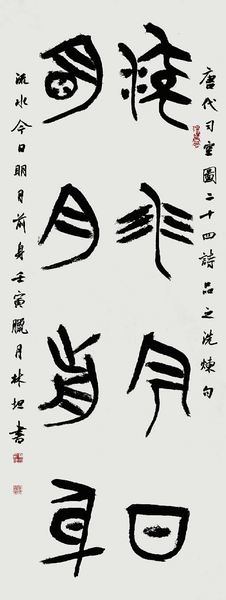 唐代司空圖二十四詩品之洗煉句
流水今日
明月前身
流水今日明月前身壬寅臘月林坦書